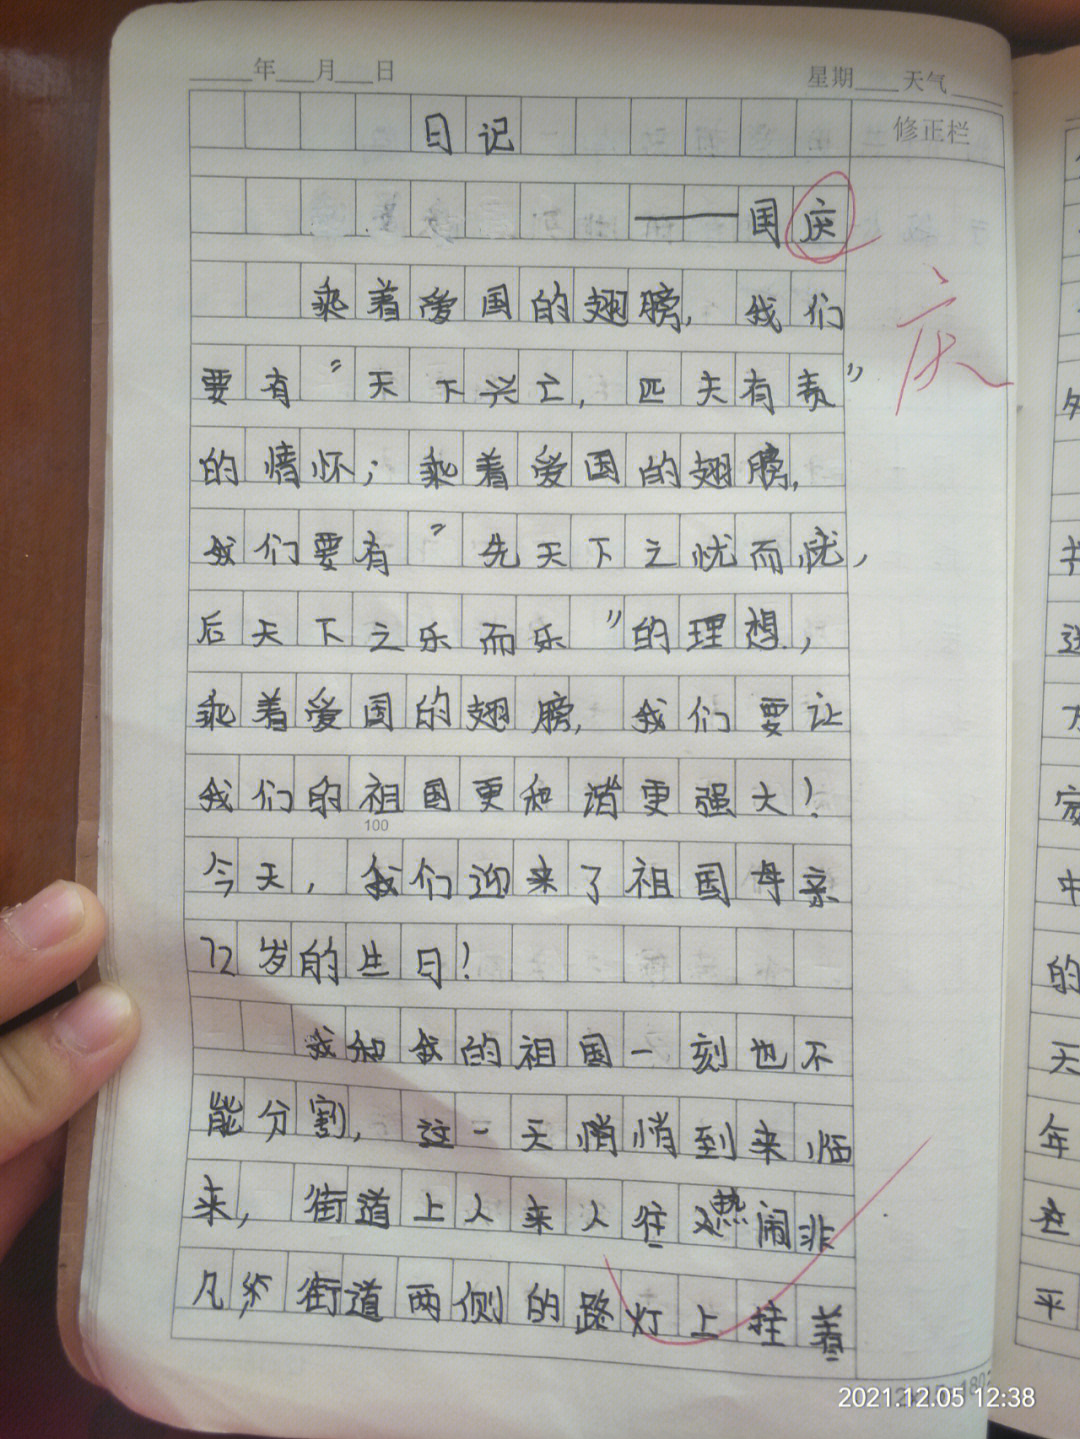 年 月 日 星期 天气
修正栏
日记
——国庆
庆
乘着爱国的翅膀，我们
要有“天下兴亡，匹夫有责”
的情怀；乘着爱国的翅膀，
我们要有“先天下之忧而忧，
后天下之乐而乐”的理想，
乘着爱国的翅膀，我们要让
我们的祖国更和谐更强大！
100
今天，我们迎来了祖国母亲
72岁的生日！
我和我的祖国一刻也不
能分割，这一天悄悄到来临
来，街道上人来人往热闹非
凡 街道两侧的路灯上挂着
2021.12.05 12:38